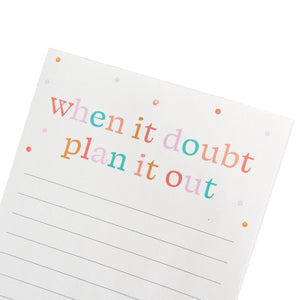 when it doubt
plan it out